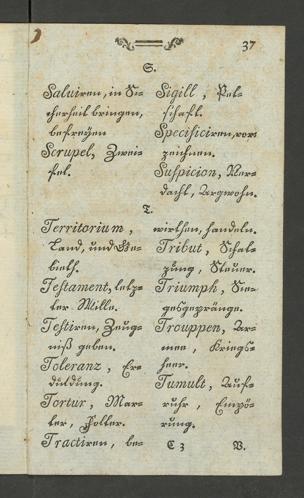 37
S.
Salviren, in Si=
cherheit bringen,
befreyen
Scrupel, Zwei=
fel.
Sigill, Pet=
schaft.
Specificiren, ver=
zeichnen.
Suspicion, Ver=
dacht, Argwohn.
T.
Territorium,
Land, und Ge=
bieth.
Testament, letz=
ter Wille.
Testiren, Zeug=
niß geben.
Toleranz, Er=
duldung.
Tortur, Mar=
ter, Folter.
Tractiren, be=
wirthen, handeln.
Tribut, Schat=
zung, Steuer.
Triumph, Sie=
gesgepränge.
Trouppen, Ar=
mee, Kriegs=
heer.
Tumult, Auf=
ruhr, Empö=
rung.
C 3
V.